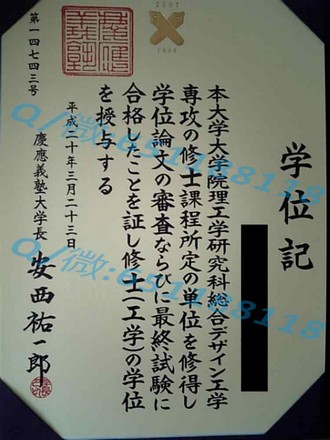 学位記
本大学大学院理工学研究科総合デザイン工学
専攻の修士課程所定の単位を修得し
学位論文の審査ならびに最終試験に
合格したことを証し修士(工学)の学位
を授与する
平成二十年三月二十三日
慶應義塾大学長 安西祐一郎
第一四七四三号
慶應義塾
Q/微:651188118
Q/微:651188118